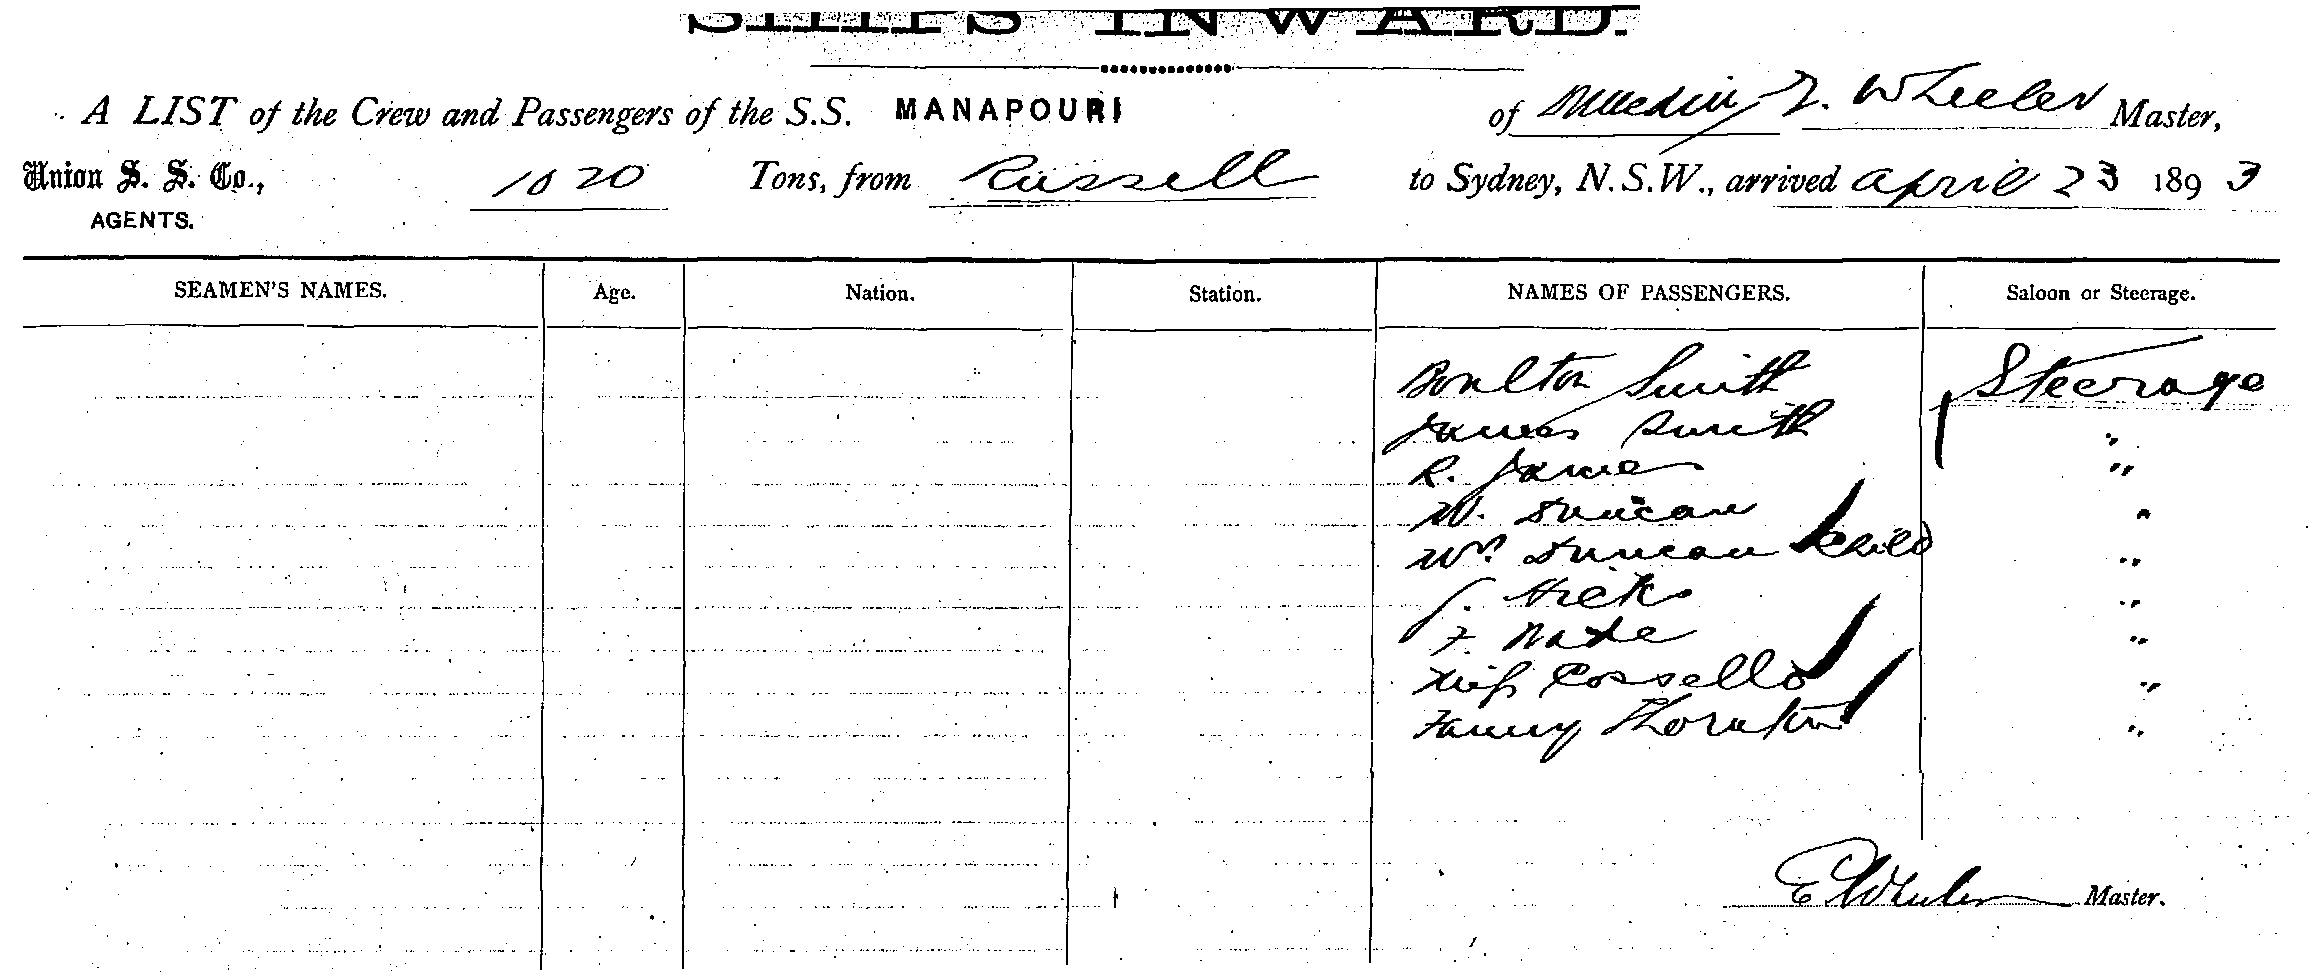 SHIPS INWARD.
A LIST of the Crew and Passengers of the S.S. MANAPOURI of Dunedin, Wheeler Master,
Union S. S. Co., 1020 Tons, from Russell to Sydney, N.S.W., arrived April 23 1893
AGENTS.
SEAMEN'S NAMES. Age. Nation. Station. NAMES OF PASSENGERS. Saloon or Steerage.
Boulton Smith Steerage
James Smith "
R. James "
W. Duncan "
Wm Duncan child "
J. Hick "
F. "
Miss Cossello "
Fanny Thornton "
E Wheeler Master.